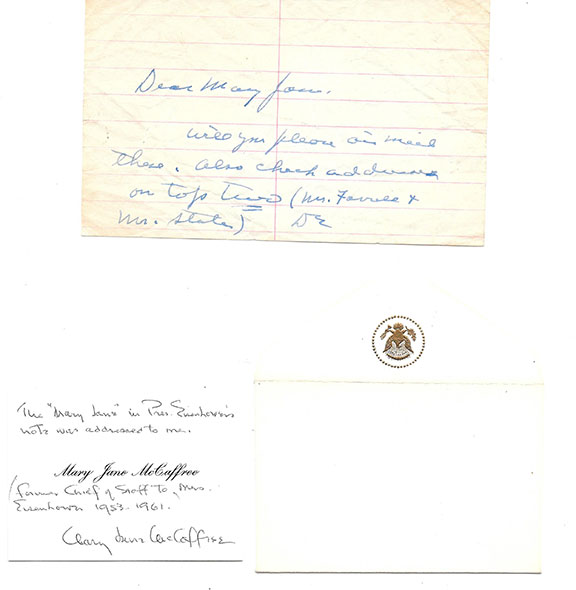 Dear Mary Jane.
Will you please air mail
these. Also check address
on top two (Mr. &
Mr. States) DE
The "Mary Jane" in Pres. Eisenhower's
note was addressed to me.
Mary Jane McCaffree
(Former Chief of Staff to Mrs.
Eisenhower 1953-1961.
Mary Jane McCaffree